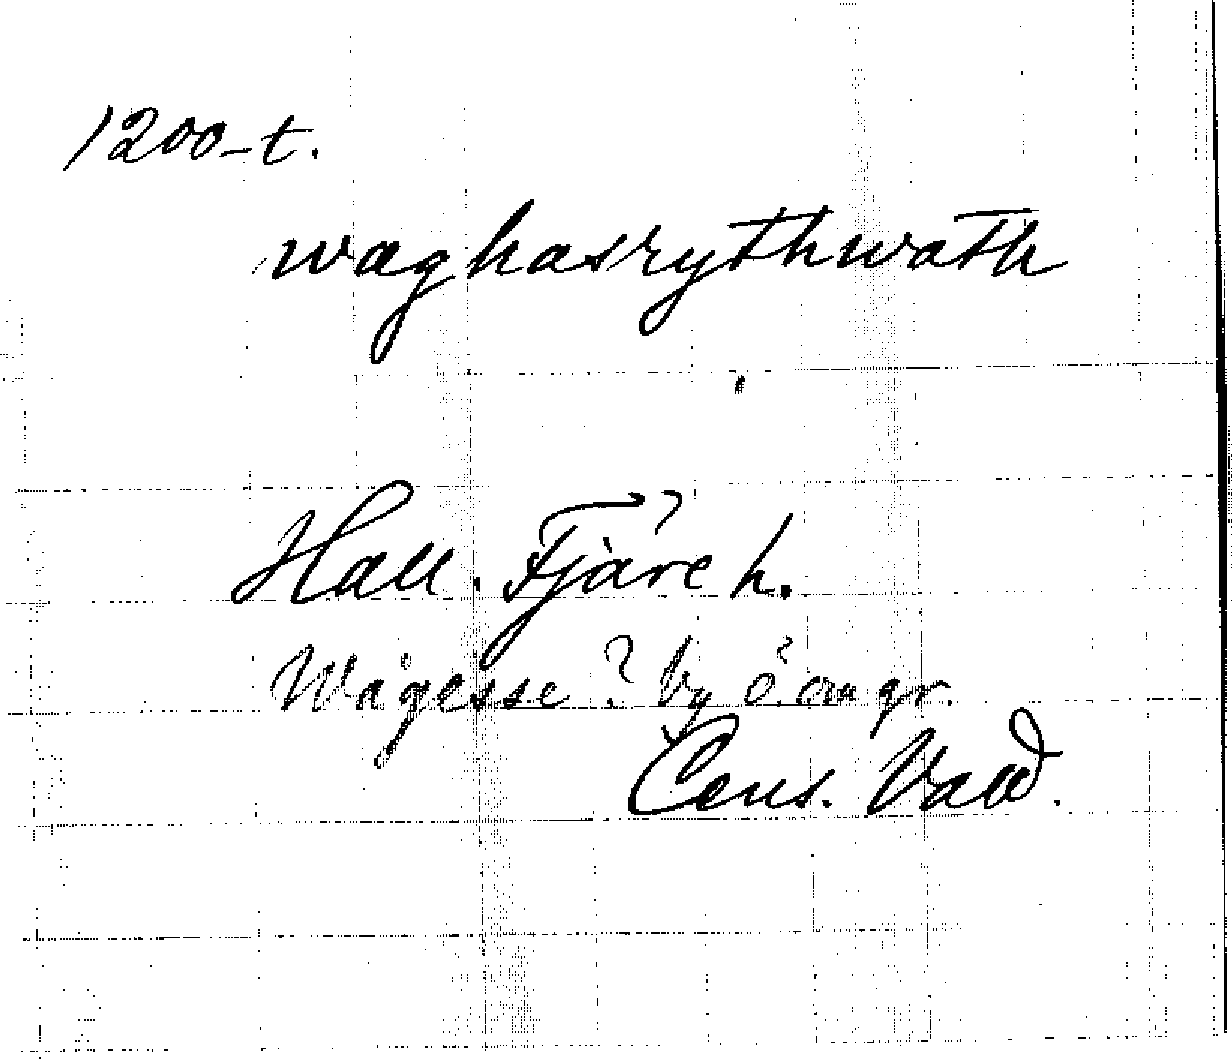 1200-t.
waghasrythwath
Hall. Fjäre h.
Wågesse? by ö. om gr.
Cens. Vald.